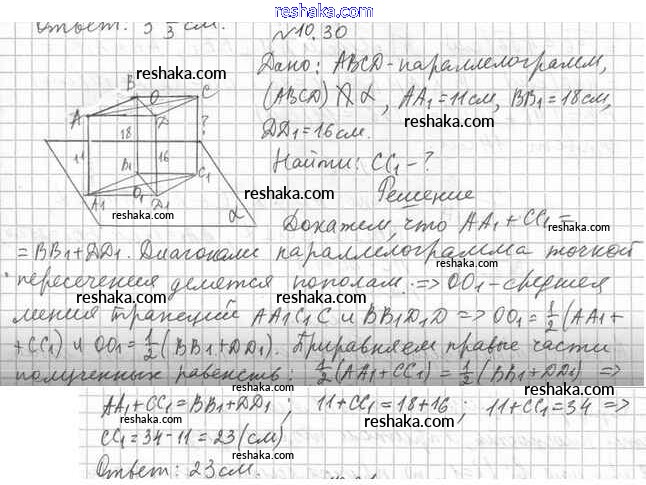 reshaka.com
Ответ: 5 1/3 см.
№10.30
Дано: ABCD - параллелограмм,
(ABCD) ∦ α, AA1 = 11см, BB1 = 18см,
DD1 = 16см.
Найти: CC1 - ?
Решение
B O C
A D
18 ?
11 16
B1 C1
A1 O1 D1
α
Докажем, что AA1 + CC1 =
= BB1 + DD1. Диагонали параллелограмма точкой
пересечения делятся пополам. => OO1 - средняя
линия трапеций AA1C1C и BB1D1D => OO1 = 1/2 (AA1 +
+ CC1) и OO1 = 1/2 (BB1 + DD1). Приравняем правые части
полученных равенств: 1/2 (AA1 + CC1) = 1/2 (BB1 + DD1) =>
AA1 + CC1 = BB1 + DD1; 11 + CC1 = 18 + 16; 11 + CC1 = 34 =>
CC1 = 34 - 11 = 23 (см)
Ответ: 23 см.
reshaka.com
reshaka.com
reshaka.com
reshaka.com
reshaka.com
reshaka.com
reshaka.com
reshaka.com
reshaka.com
reshaka.com
reshaka.com
reshaka.com
reshaka.com